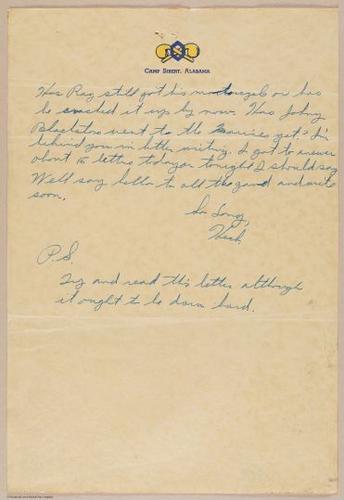 CAMP SIBERT, ALABAMA
Has Ray still got his motorcycle or has
he cracked it up by now. Has Johny
Blackstone went to the Marines yet? I'm
behind you in letter writing. I got to answer
about 15 letters today or tonight I should say
Well say hello to all the gang and write
soon.
So Long,
P.S.
Try and read this letter although
it ought to be darn hard.